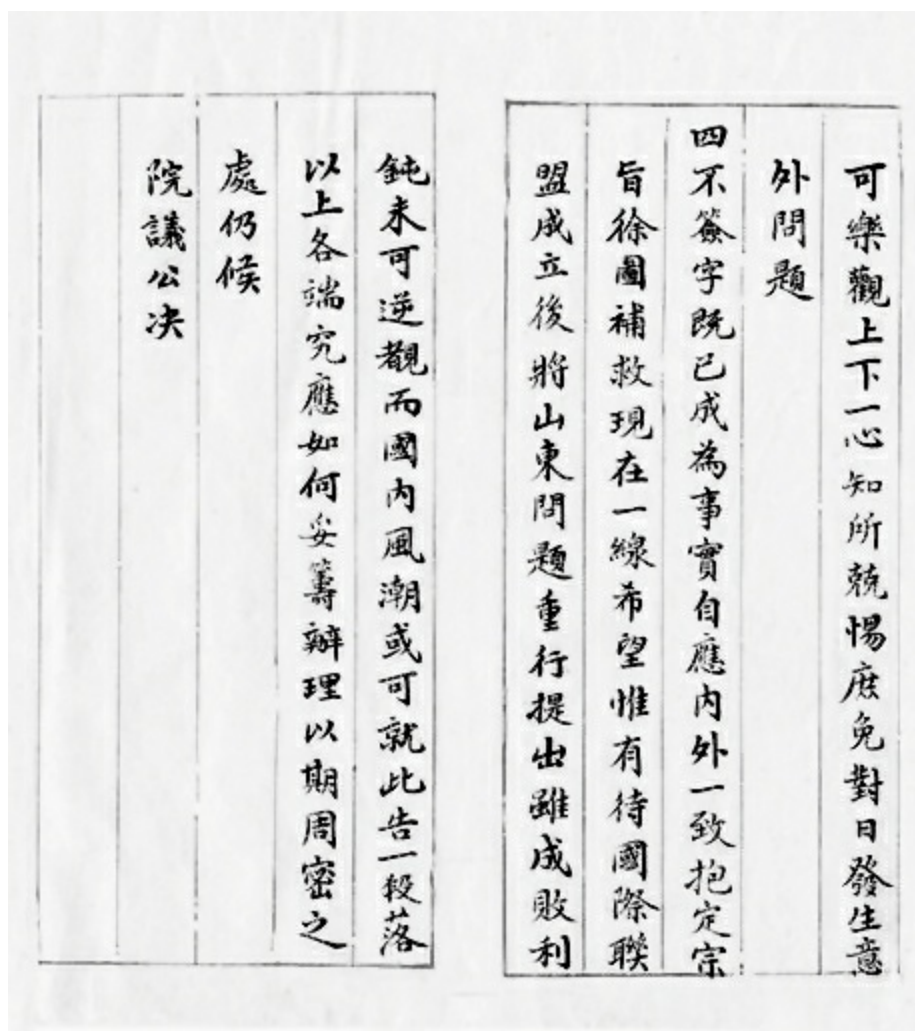 可樂觀上下一心知所兢惕庶免對日發生意
外問題
四不簽字既已成為事實自應内外一致抱定宗
旨徐圖補救現在一線希望惟有待國際聯
盟成立後將山東問題重行提出雖成敗利
鈍未可逆覩而國内風潮或可就此告一段落
以上各端究應如何妥籌辦理以期周密之
處仍候
院議公决